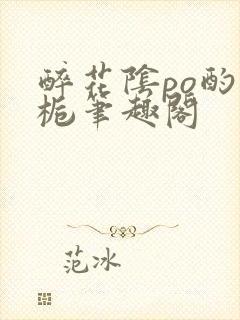 醉花陰po酌
栀筆趣閣
范冰